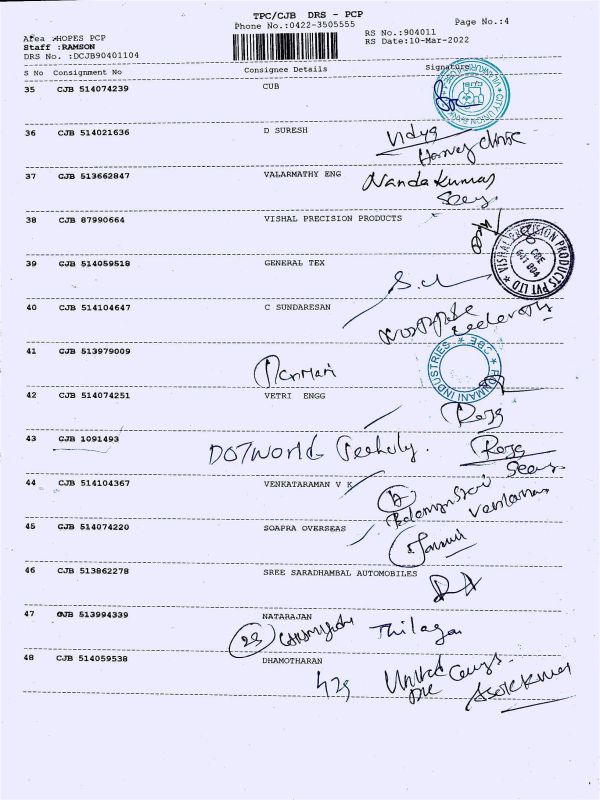 TPC/CJB DRS - PCP
Phone No.:0422-3505555
Page No.:4
Area :HOPES PCP
RS No.:904011
Staff :RAMSON
RS Date:10-Mar-2022
DRS No. :DCJB90401104
S No Consignment No Consignee Details Signature
35 CJB 514074239 CUB
CITY UNION BANK
36 CJB 514021636 D SURESH
Vidya
37 CJB 513662847 VALARMATHY ENG
Nandakumar
38 CJB 87990664 VISHAL PRECISION PRODUCTS
VISHAL PRECISION PRODUCTS PVT LTD
CBE
39 CJB 514059518 GENERAL TEX
40 CJB 514104647 C SUNDARESAN
41 CJB 513979009
INDUSTRIES * CBE *
42 CJB 514074251 VETRI ENGG
Raja
43 CJB 1091493
DOTWorld
Raja
44 CJB 514104367 VENKATARAMAN V K
45 CJB 514074220 SOAPRA OVERSEAS
46 CJB 513862278 SREE SARADHAMBAL AUTOMOBILES
47 CJB 513994339 NATARAJAN
Thilaga
48 CJB 514059538 DHAMOTHARAN
United
Asokkumar